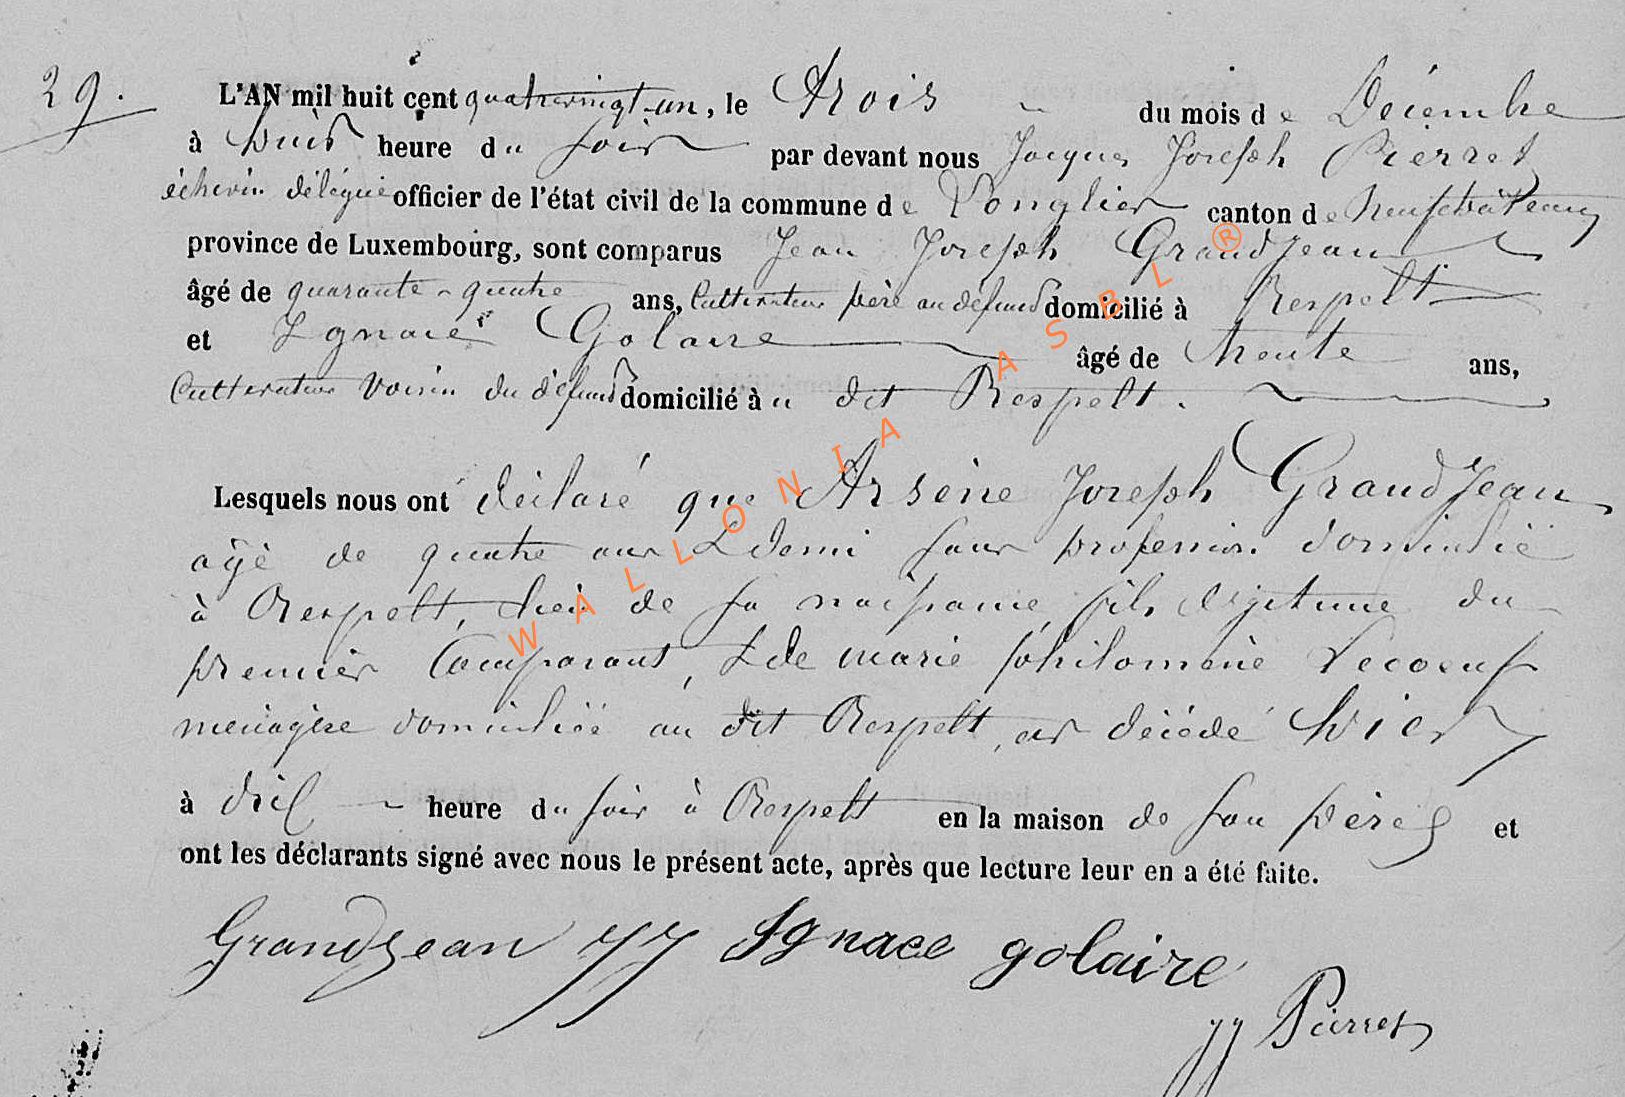 29.
L'AN mil huit cent quatrevingt-un, le Trois du mois de Décembre
à huit heure du soir par devant nous Jacques Joseph Pierret
échevin délégué officier de l'état civil de la commune de Longlier canton de Neufchâteau
province de Luxembourg, sont comparus Jean Joseph GrandJean
âgé de quarante-quatre ans, Cultivateur père au défunt domicilié à Respelt
et Ignace Golaire âgé de trente ans,
Cultivateur voisin du défunt domicilié à u dit Respelt.
Lesquels nous ont déclaré que Arsène Joseph GrandJean
âgé de quatre ans & demi sans profession domicilié
à Respelt, lieu de sa naissance, fils légitime du
premier Comparant, & de marie philomène Lecoeuf
ménagère domiciliée au dit Respelt, est décédé hier
à dix heure du soir à Respelt en la maison de son père et
ont les déclarants signé avec nous le présent acte, après que lecture leur en a été faite.
Grandjean JJ Ignace golaire
JJ Pierret
WALLONIA ASBL ®